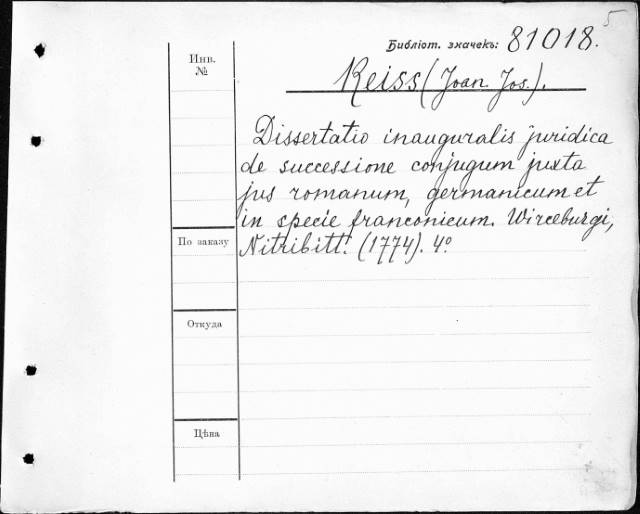 5
Библіот. значекъ: 81018.
Инв.
№
Reiss (Joan. Jos.).
Dissertatio inauguralis juridica
de successione conjugum juxta
jus romanum, germanicum et
in specie franconicum. Wirceburgi,
По заказу
Nitribitt. (1774). 4º
Откуда
Цѣна